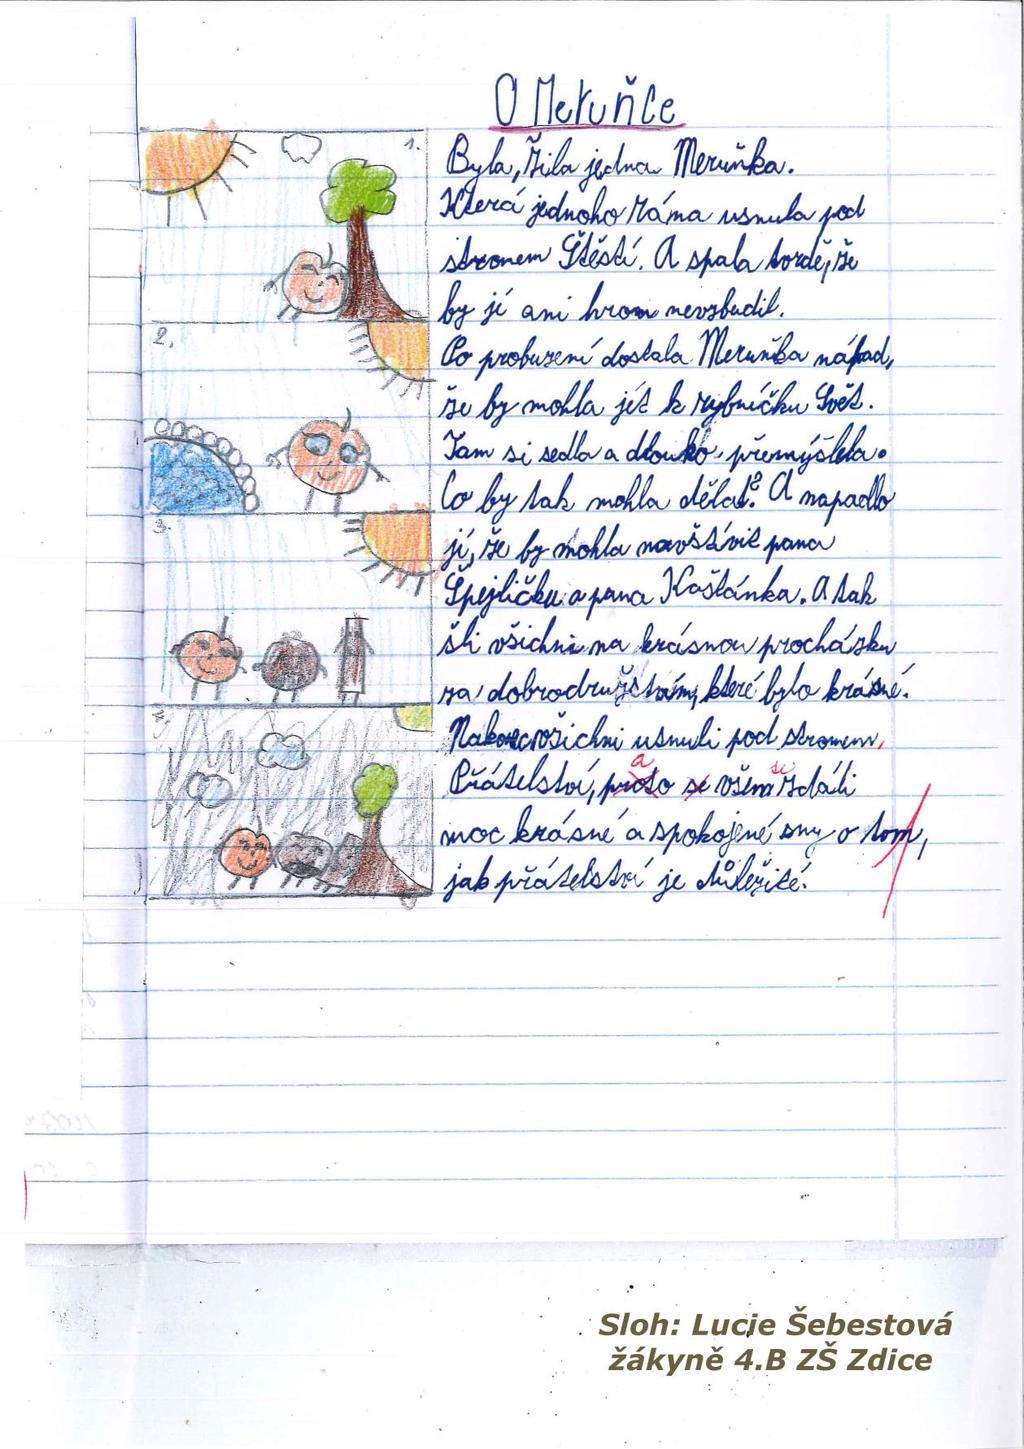 O Meruňce
1.
Byla, žila jedna Meruňka.
Která jednoho rána usnula pod
stromem Štěstí. A spala tvrdě, že
by jí ani hrom nevzbudil.
2.
Po probuzení dostala Meruňka nápad,
že by mohla jít k rybníčku Svět.
Tam si sedla a dlouho přemýšlela.
Co by tak mohla dělat? A napadlo
3.
jí, že by mohla navštívit pana
Špejličku a pana Kaštánka. A tak
šli všichni na krásnou procházku
za dobrodružstvím, které bylo krásné.
4.
Nakonec všichni usnuli pod stromem
Přátelství, proto se všem zdáli
a se
moc krásné a spokojené sny o tom,
jak přátelství je důležité.
Sloh: Lucie Šebestová
žákyně 4.B ZŠ Zdice